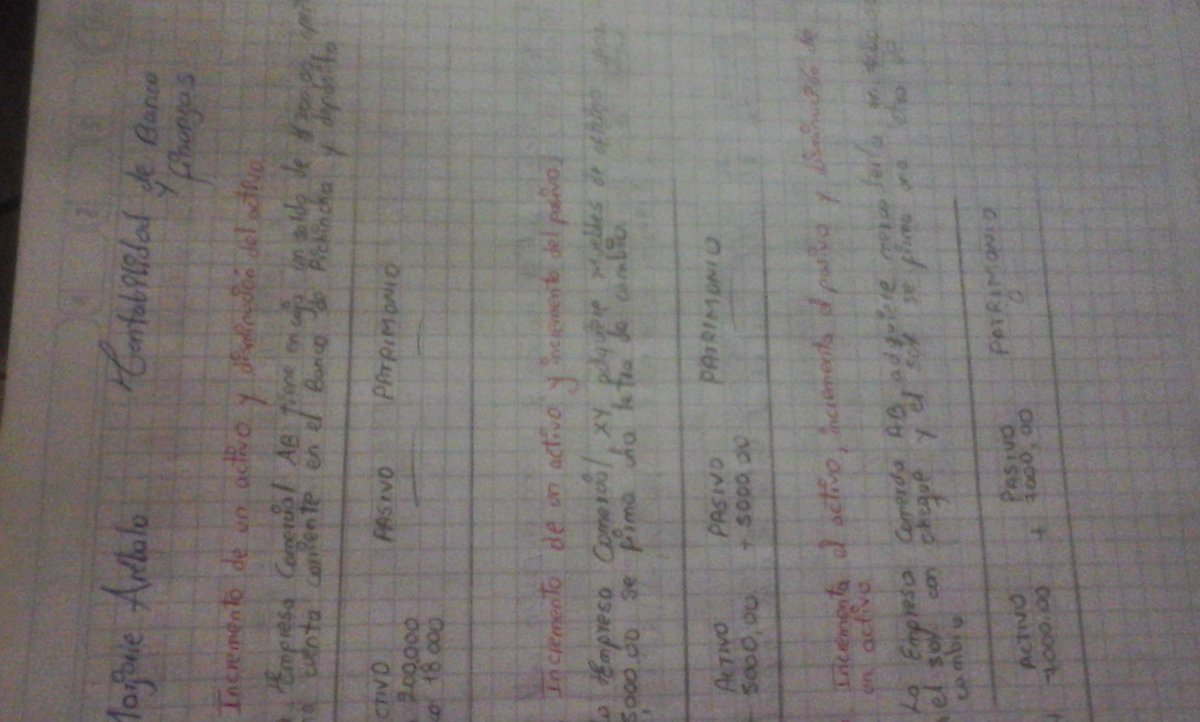 Marjorie Arevalo
Contabilidad de Banco
y finanzas
Incremento de un activo y disminución del activo
Empresa Comercial AB tiene en caja un saldo de
cuenta corriente en el Banco de Pichincha y deposito
CTIVO PASIVO PATRIMONIO
200,000 — —
18 000
Incremento de un activo y incremento del pasivo
Empresa Comercial xy muebles de
5,000.00 se firma una letra de cambio
ACTIVO PASIVO PATRIMONIO
5000,00 + 5000.00 —
Incrementa el activo, incrementa el pasivo y disminución de
un activo.
La Empresa Comercial AB adquiere
el 50% con cheque y el 50% se firma una letra de
cambio
ACTIVO PASIVO PATRIMONIO
7000.00 + 7000,00 0